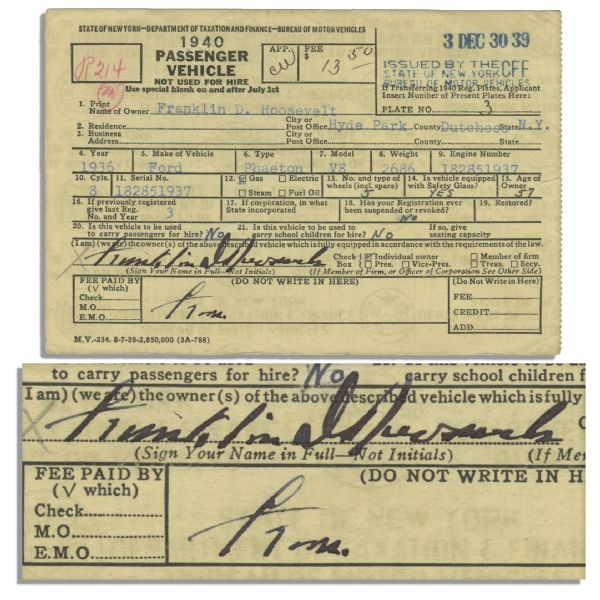 STATE OF NEW YORK—DEPARTMENT OF TAXATION AND FINANCE—BUREAU OF MOTOR VEHICLES
R214
1940
PASSENGER
VEHICLE
NOT USED FOR HIRE
Use special blank on and after July 1st
APP. FEE
$ 13 50
3 DEC 30 39
ISSUED BY THE CFF
STATE OF NEW YORK
BUREAU OF MOTOR VEHICLES
If Transferring 1940 Reg. Plates, Applicant
Insert Number of Present Plates Here:
PLATE NO. 3
1. Print
Name of Owner Franklin D. Roosevelt
2. Residence City or Post Office Hyde Park County Dutchess State N.Y.
3. Business Address City or Post Office County State
4. Year 5. Make of Vehicle 6. Type 7. Model 8. Weight 9. Engine Number
1936 Ford Phaeton V8 2686 182851937
10. Cyls. 11. Serial No. 12. Gas Electric 13. No. and type of wheels (incl. spare) 14. Is vehicle equipped with Safety Glass? 15. Age of Owner
8 182851937 Steam Fuel Oil 5 YES 57
16. If previously registered give last Reg. No. and Year 3 17. If corporation, in what State incorporated 18. Has your Registration ever been suspended or revoked? No 19. Restored?
20. Is this vehicle to be used to carry passengers for hire? No 21. Is this vehicle to be used to carry school children for hire? No If so, give seating capacity
(I am) (we are) the owner(s) of the above described vehicle which is fully equipped in accordance with the requirements of the law.
X Franklin D Roosevelt Check Box Individual owner Member of firm
Pres. Vice-Pres. Treas. Secy.
(Sign Your Name in Full—Not Initials) (If Member of Firm, or Officer of Corporation See Other Side)
FEE PAID BY (DO NOT WRITE IN HERE) (Do Not Write in Here)
(√ which) FEE
Check
M.O. CREDIT
E.M.O. ADD.
M.V.-254. 8-7-39-2,850,000 (3A-788)
to carry passengers for hire? No carry school children f
I am) (we are) the owner(s) of the above described vehicle which is fully
X Franklin D Roosevelt
(Sign Your Name in Full—Not Initials) (If Mem
FEE PAID BY (DO NOT WRITE IN H
(√ which)
Check
M.O.
E.M.O.